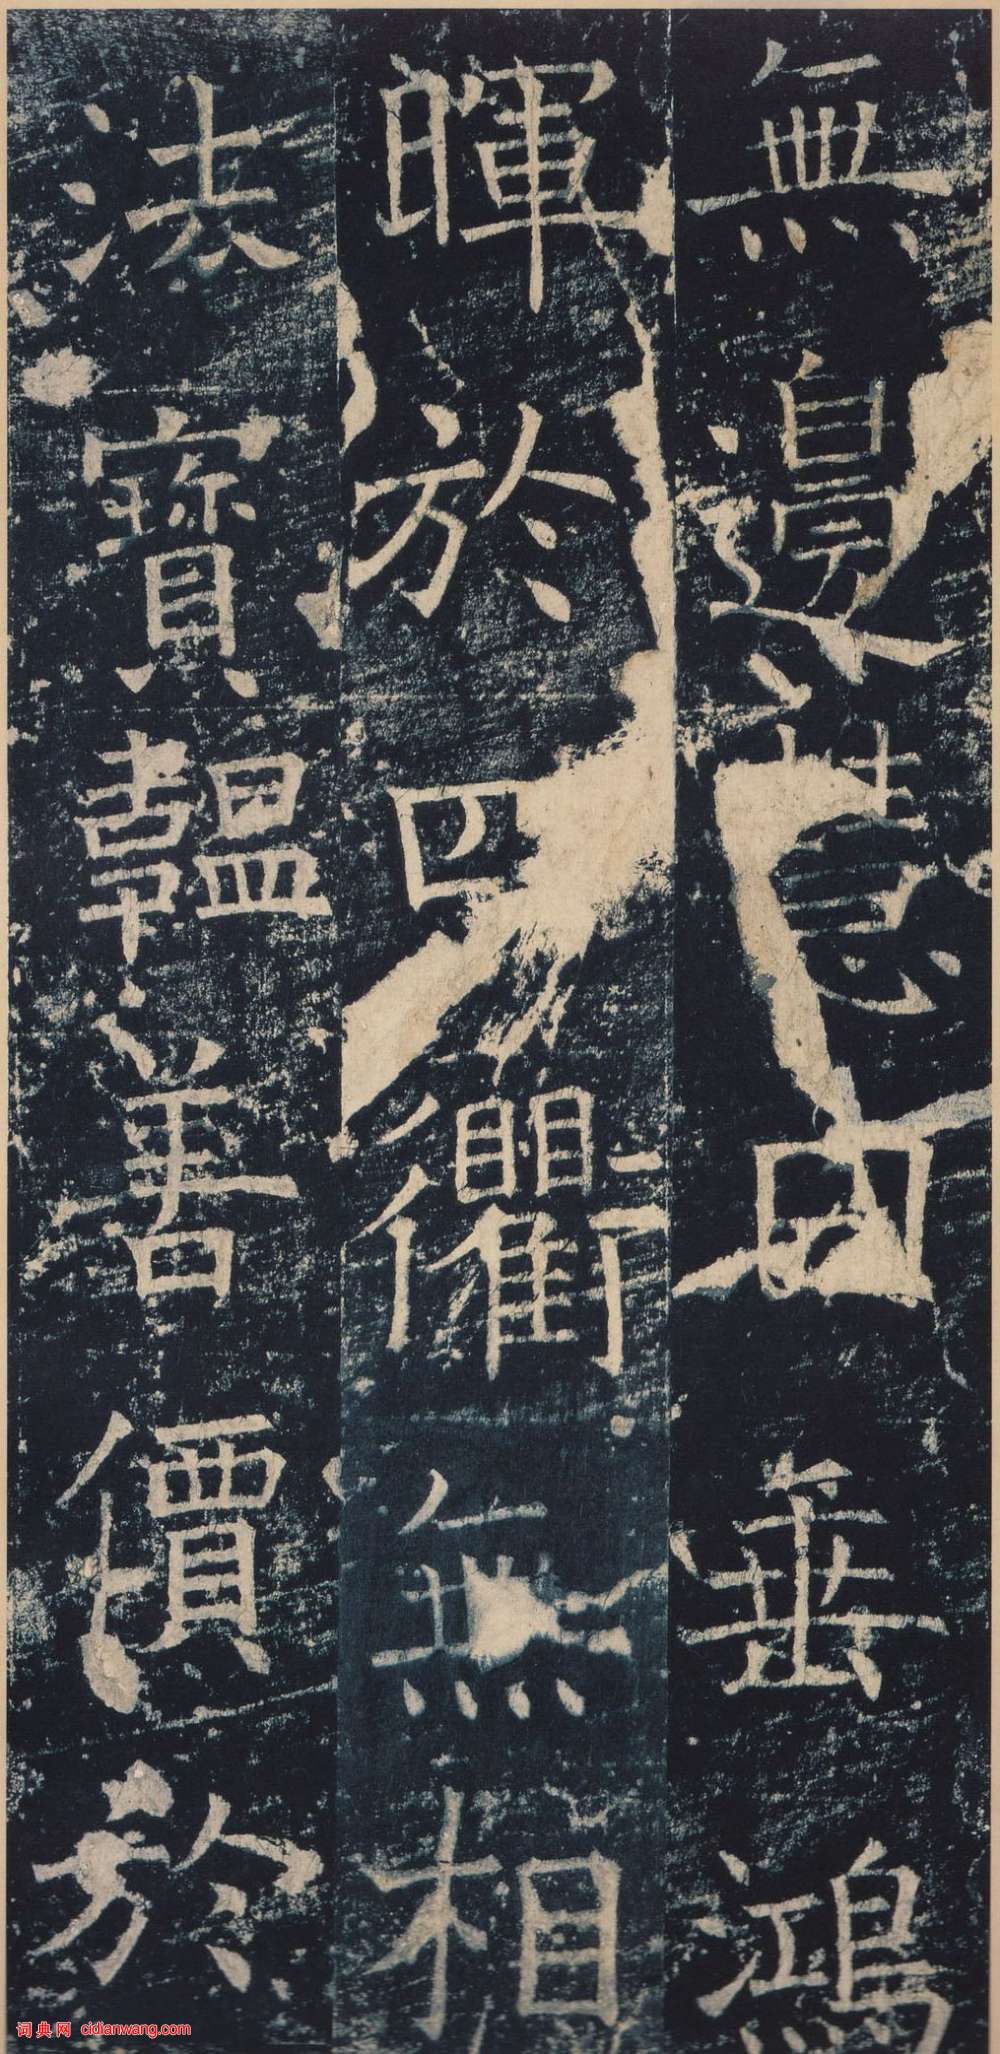 無邊慧日垂鴻
暉於四衢無相
法寶韞善價於
词典网 cidianwang.com